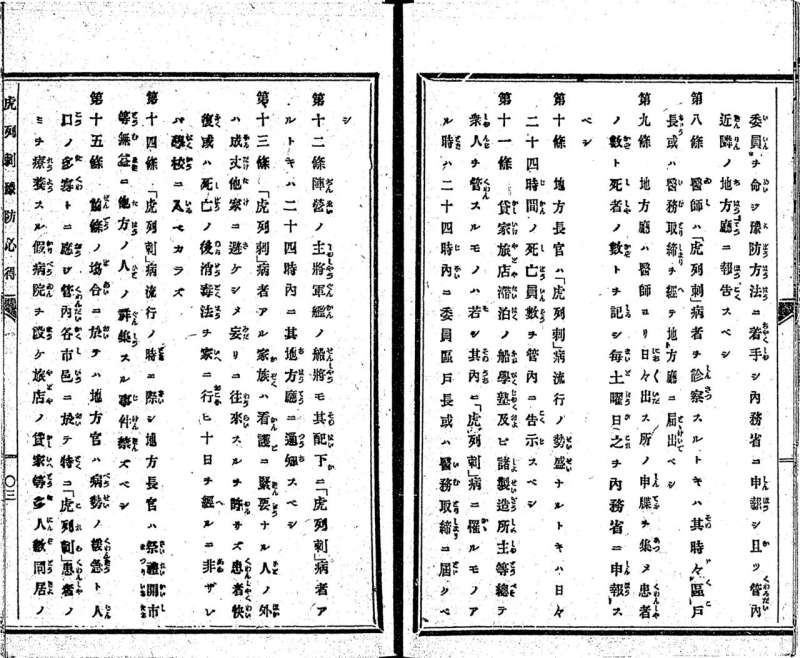 委員ヲ命シ豫防方法ニ着手シ內務省ニ申報シ且ツ管內
近隣ノ地方廳ニ報告スベシ
第八條 醫師ハ「虎列刺」病者ヲ診察スルトキハ其時々區戶
長或ハ醫務取締ヲ經テ地方廳ニ屆出ベシ
第九條 地方廳ハ醫師ヨリ日々出ス所ノ申牒ヲ集メ患者
ノ數ト死者ノ數トヲ記シ每土曜日之ヲ內務省ニ申報ス
ベシ
第十條 地方長官ハ「虎列刺」病流行ノ勢盛ナルトキハ日々
二十四時間ノ死亡員數ヲ管內ニ告示スベシ
第十一條 貸家旅店滯泊ノ船學塾及ビ諸製造所主等總テ
衆人ヲ管スルモノハ若シ其內ニ「虎列刺」病ニ罹ルモノア
ル時ハ二十四時內ニ委員區戶長或ハ醫務取締ニ屆クベ
シ
第十二條 陣營ノ主將軍艦ノ船將モ其配下ニ「虎列刺」病者ア
ルトキハ二十四時內ニ其地方廳ニ通知スベシ
第十三條 「虎列刺」病者アル家族ハ看護ニ緊要ナル人ノ外
ハ成丈他家ニ避ケシメ妄リニ往來スルヲ許サズ患者快
復或ハ死亡ノ後消毒法ヲ家ニ行ヒ十日ヲ經ルニ非ザレ
バ學校ニ入ベカラズ
第十四條 「虎列刺」病流行ノ時ニ際シ地方長官ハ祭禮開市
等無益ニ他方ノ人ノ群集スル事件禁ズベシ
第十五條 前條ノ塲合ニ於テハ地方官ハ病勢ノ緩急ト人
口ノ多寡トニ應ジ管內各市邑ニ於テ特ニ「虎列刺」患者ノ
ミヲ療養スル假病院ヲ設ケ旅店ノ貸家等多人數同居ノ
虎列刺豫防心得
〇三